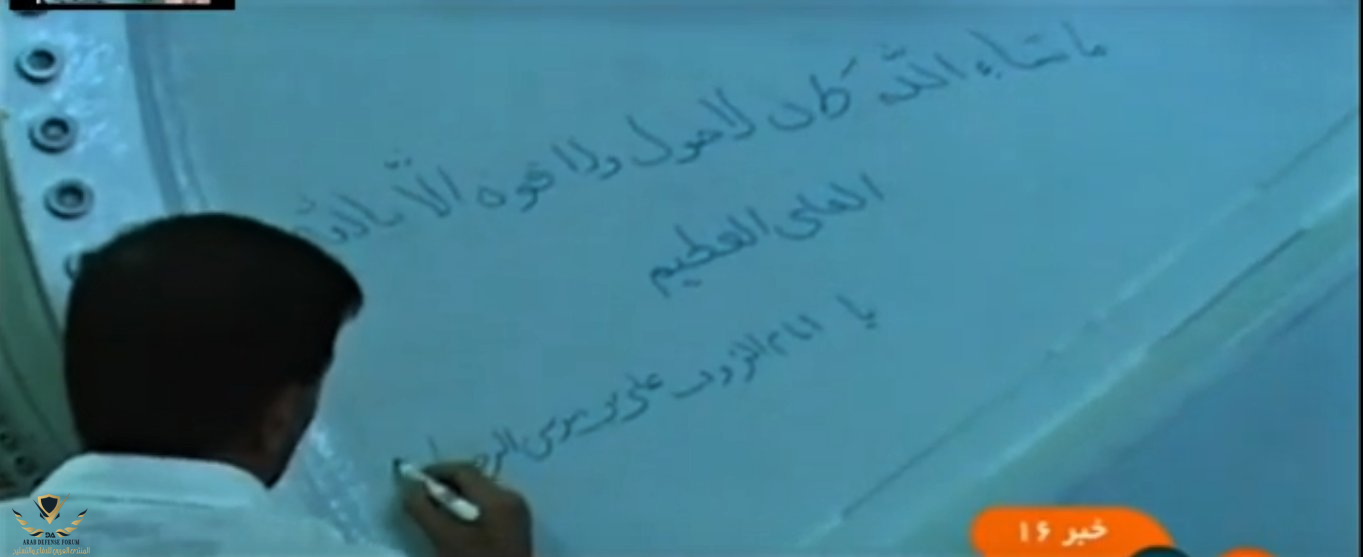 ماشاء اللّه کان لا حول ولا قوه الّا باللّه
العلی العظیم
یا امام الرووف علی بن موسی الرضا
خبر ۱۶
DA
ARAB DEFENSE FORUM
المنتدى العربي للدفاع والتسليح